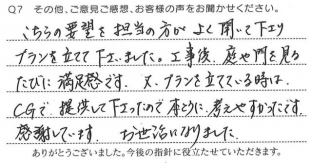 Q7 その他、ご意見ご感想、お客様の声をお聞かせください。
こちらの要望を担当の方がよく聞いて下さり
プランを立てて下さいました。工事後、庭や門を見る
たびに満足感です。又、プランを立てている時は、
CGで提供して下さったので本当に、考えやすかったです。
感謝しています。 お世話になりました。
ありがとうございました。今後の指針に役立たせていただきます。